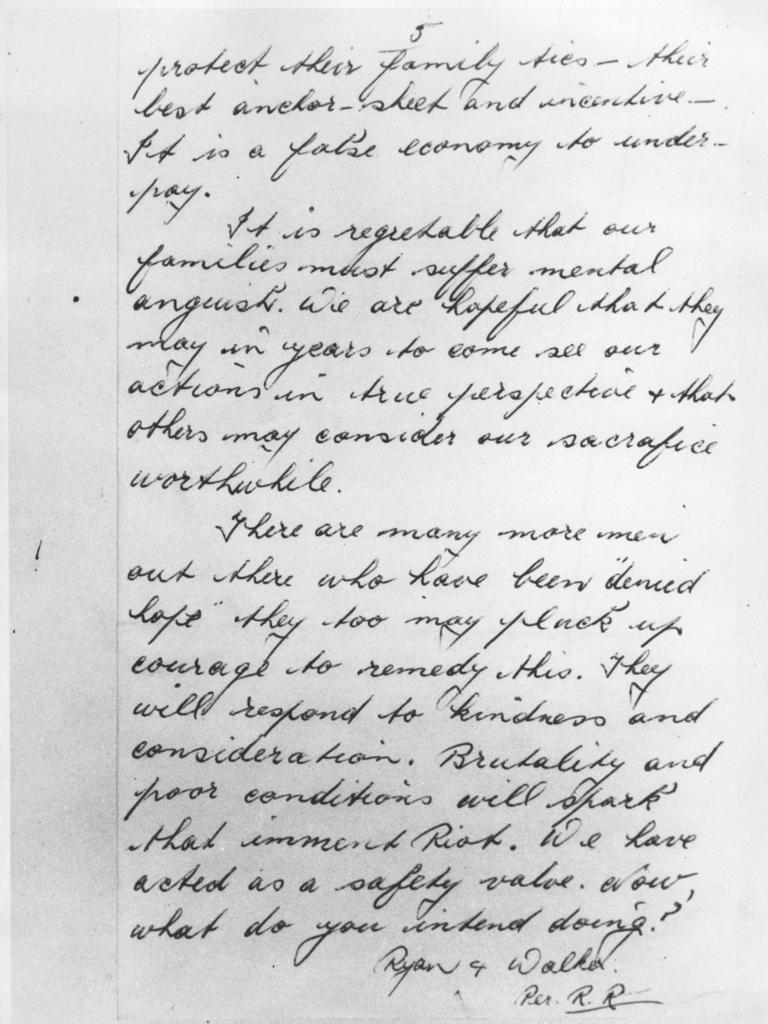 5
protect their family ties - their
best anchor-sheet and incentive -
It is a false economy to under-
pay.
It is regretable that our
families must suffer mental
anguish. We are hopeful that they
may in years to come see our
actions in true perspective + that
others may consider our sacrafice
worthwhile.
There are many more men
out there who have been "denied
hope" they too may pluck up
courage to remedy this. They
will respond to kindness and
consideration. Brutality and
poor conditions will spark
that imment Riot. We have
acted as a safety valve. Now,
what do you intend doing?
Ryan + Walker.
Per. R. R